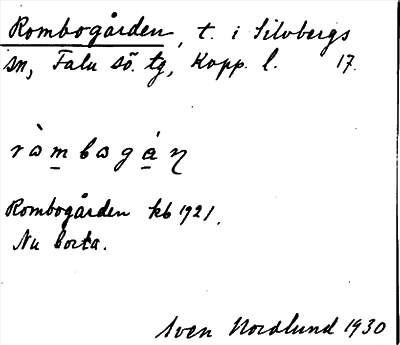 Rombogården, t. i Silvbergs
sn, Falu sö. tg, Kopp. l. 17.
ròmbogán
Rombogården kb 1921.
Nu borta.
Sven Nordlund 1930